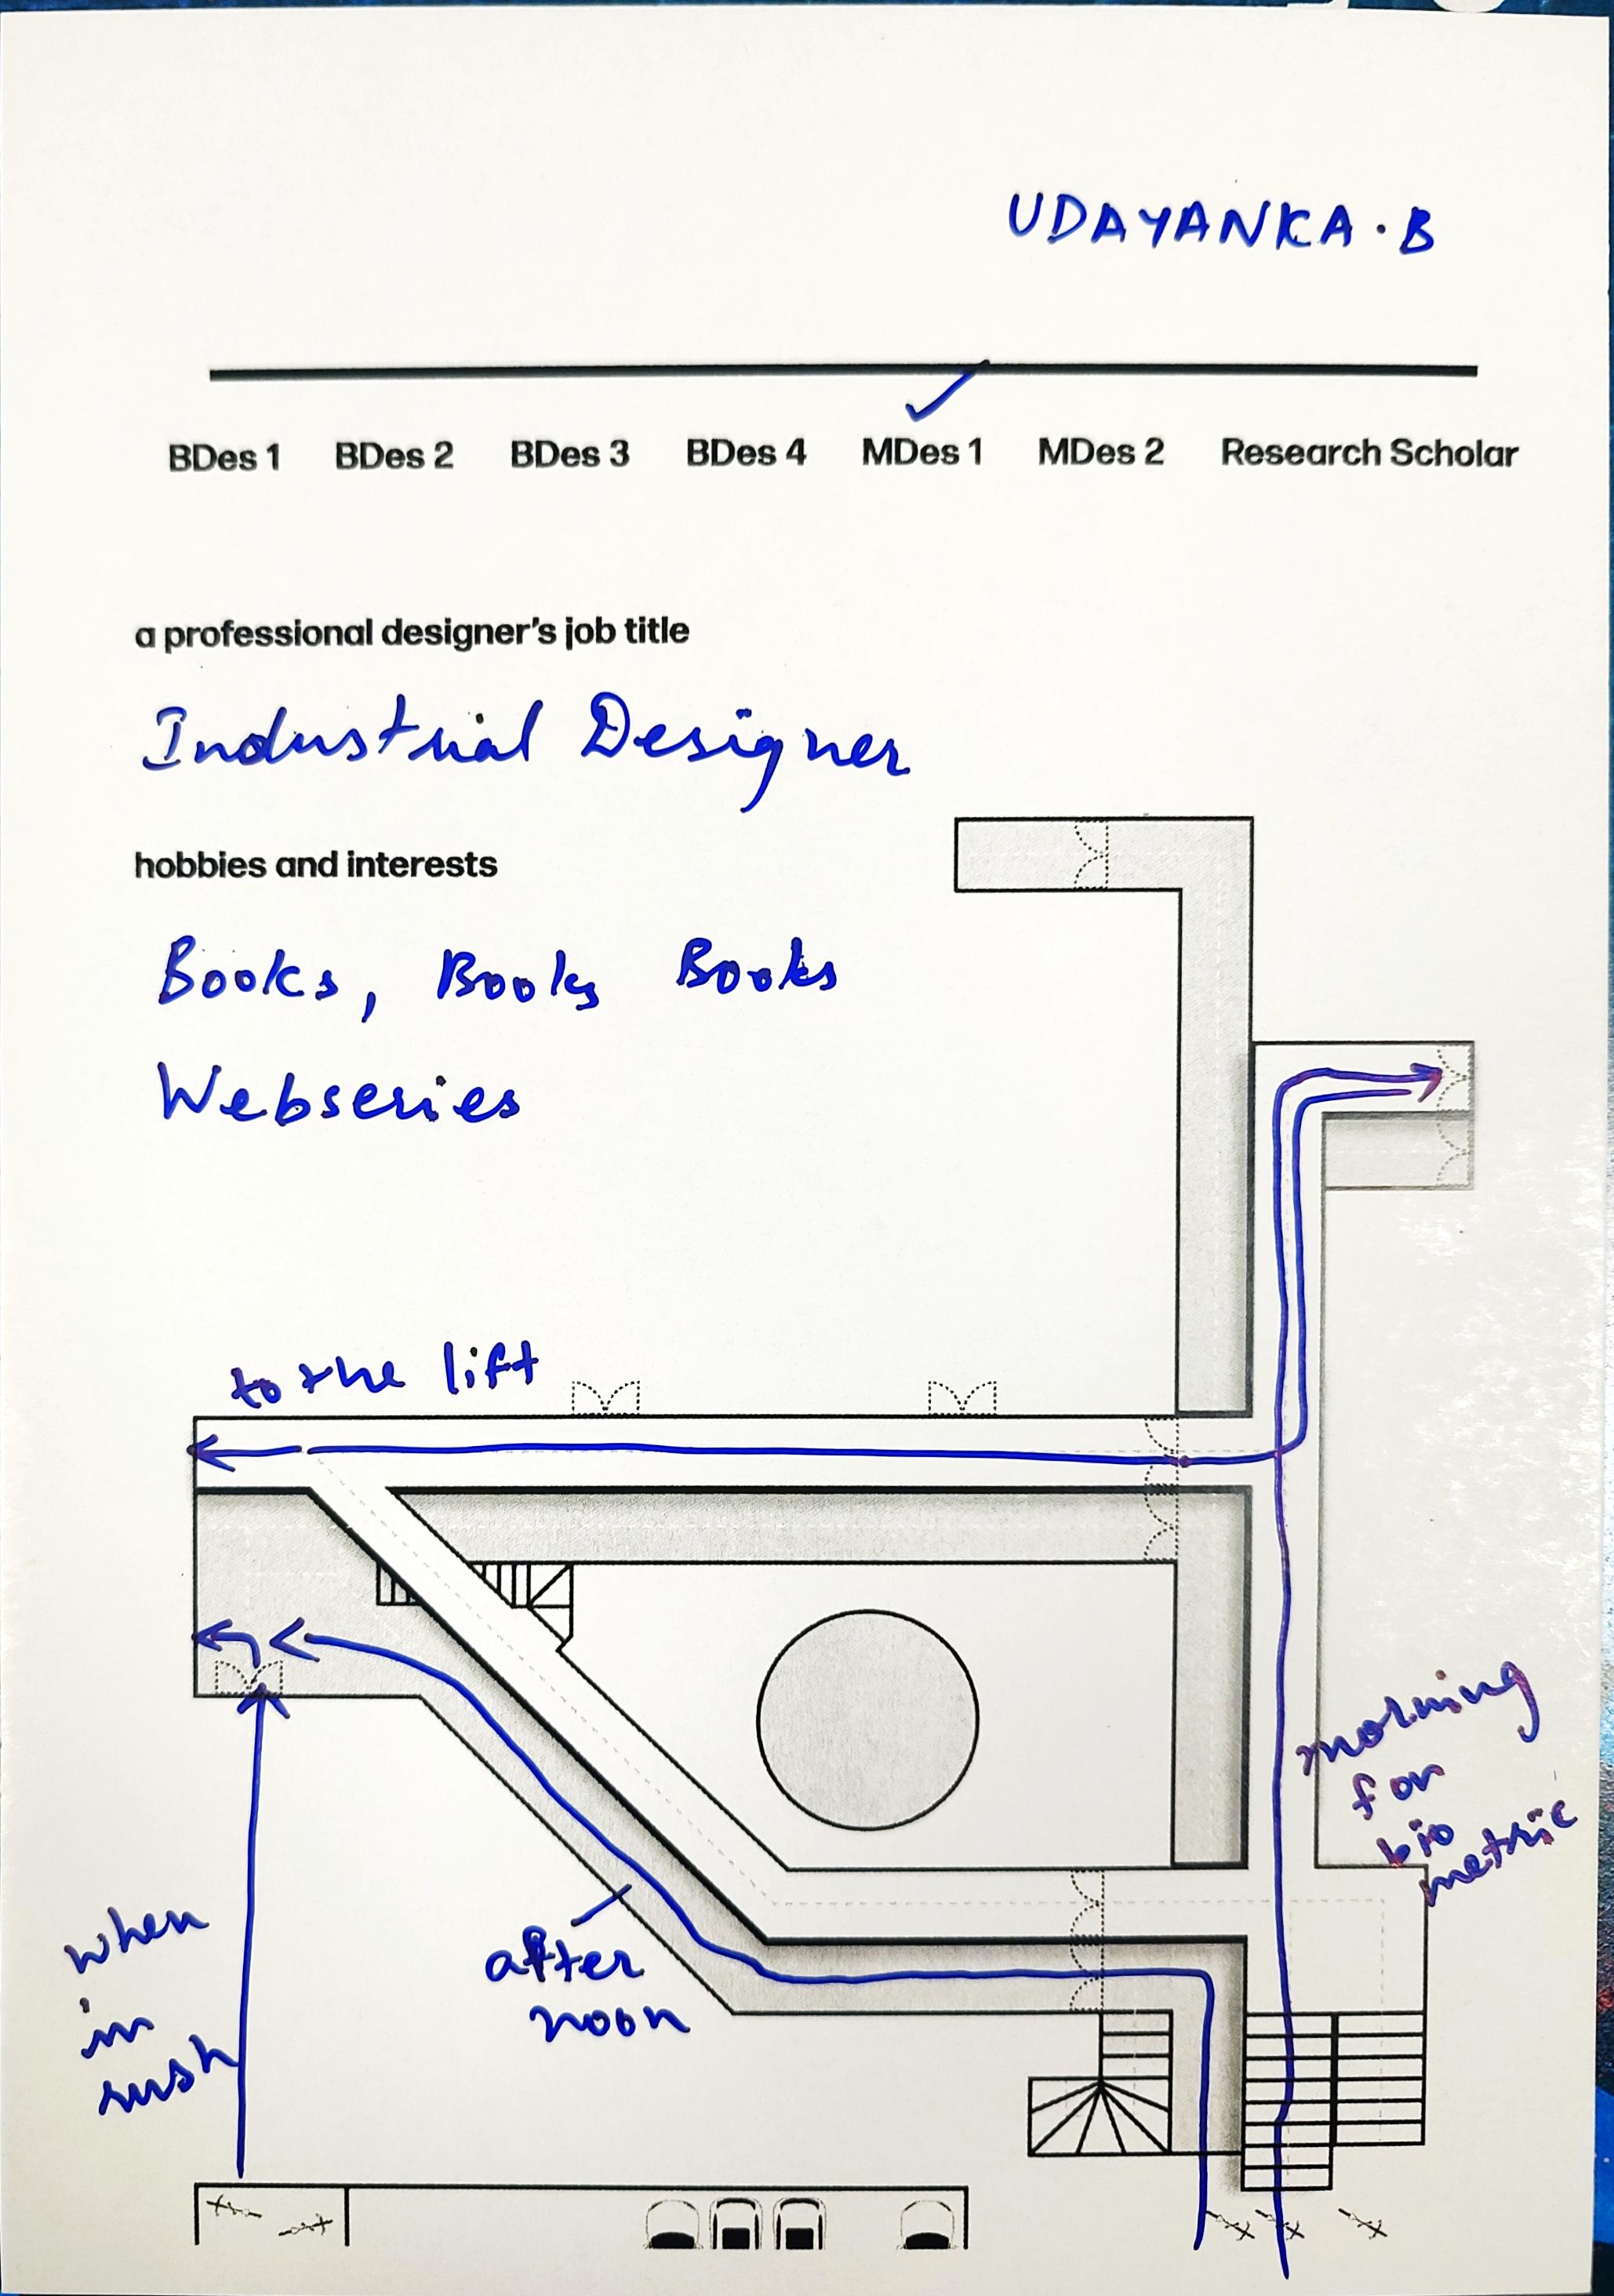 UDAYANKA.B
BDes 1 BDes 2 BDes 3 BDes 4 MDes 1 MDes 2 Research Scholar
a professional designer's job title
Industrial Designer
hobbies and interests
Books, Books Books
Webseries
to the lift
morning
for
bio
metric
when
in
rush
after
noon